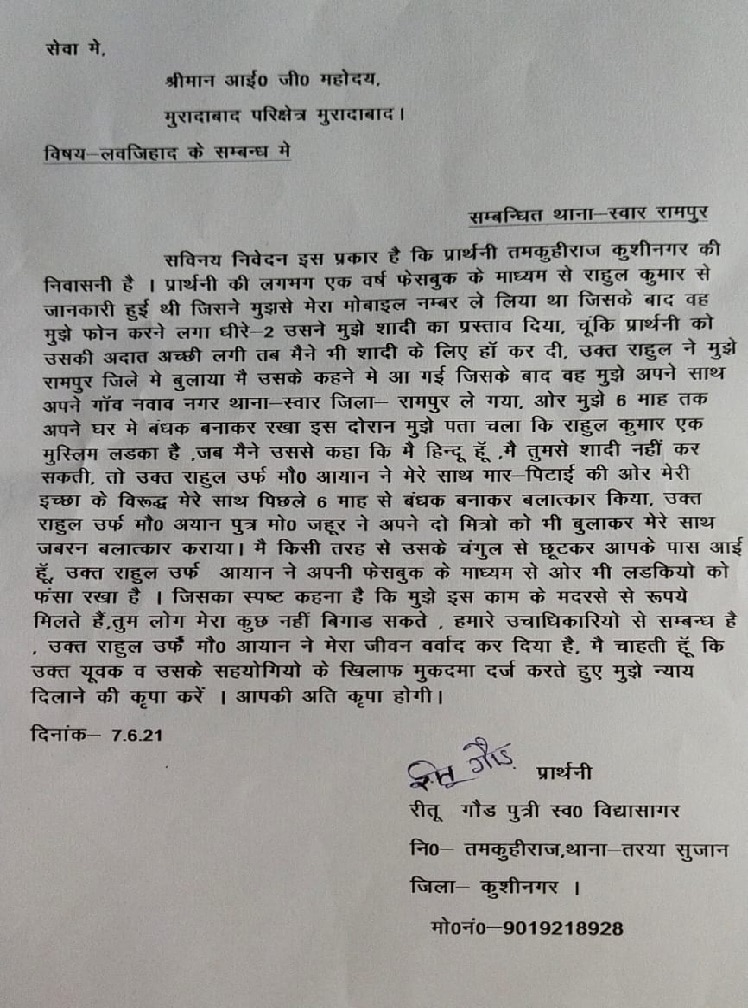 सेवा मे,
श्रीमान आई0 जी0 महोदय,
मुरादाबाद परिक्षेत्र मुरादाबाद।
विषय–लवजिहाद के सम्बन्ध मे
सम्बन्धित थाना–स्वार रामपुर
सविनय निवेदन इस प्रकार है कि प्रार्थनी तमकुहीराज कुशीनगर की
निवासनी है । प्रार्थनी की लगभग एक वर्ष फेसबुक के माध्यम से राहुल कुमार से
जानकारी हुई थी जिसने मुझसे मेरा मोबाइल नम्बर ले लिया था जिसके बाद वह
मुझे फोन करने लगा धीरे–2 उसने मुझे शादी का प्रस्ताव दिया, चूंकि प्रार्थनी को
उसकी अदात अच्छी लगी तब मैने भी शादी के लिए हॉ कर दी, उक्त राहुल ने मुझे
रामपुर जिले मे बुलाया मै उसके कहने मे आ गई जिसके बाद वह मुझे अपने साथ
अपने गॉव नवाव नगर थाना–स्वार जिला– रामपुर ले गया, ओर मुझे 6 माह तक
अपने घर मे बंधक बनाकर रखा इस दोरान मुझे पता चला कि राहुल कुमार एक
मुस्लिम लडका है ,जब मैने उससे कहा कि मै हिन्दू हूॅ ,मै तुमसे शादी नहीं कर
सकती, तो उक्त राहुल उर्फ मौ0 आयान ने मेरे साथ मार–पिटाई की ओर मेरी
इच्छा के विरूद्ध मेरे साथ पिछले 6 माह से बंधक बनाकर बलात्कार किया, उक्त
राहुल उर्फ मौ0 अयान पुत्र मो0 जहूर ने अपने दो मित्रो को भी बुलाकर मेरे साथ
जबरन बलात्कार कराया। मै किसी तरह से उसके चंगुल से छूटकर आपके पास आई
हूॅ, उक्त राहुल उर्फ आयान ने अपनी फेसबुक के माध्यम से ओर भी लडकियो को
फंसा रखा है । जिसका स्पष्ट कहना है कि मुझे इस काम के मदरसे से रूपये
मिलते हैं,तुम लोग मेरा कुछ नहीं बिगाड सकते , हमारे उचाधिकारियो से सम्बन्ध है
, उक्त राहुल उर्फै मौ0 आयान ने मेरा जीवन वर्वाद कर दिया है, मै चाहती हूॅ कि
उक्त यूवक व उसके सहयोगियो के खिलाफ मुकदमा दर्ज करते हुए मुझे न्याय
दिलाने की कृपा करें । आपकी अति कृपा होगी।
दिनांक– 7.6.21
रीतू गौड
प्रार्थनी
रीतू गौड पुत्री स्व0 विद्यासागर
नि0– तमकुहीराज,थाना–तरया सुजान
जिला– कुशीनगर ।
मो0नं0–9019218928